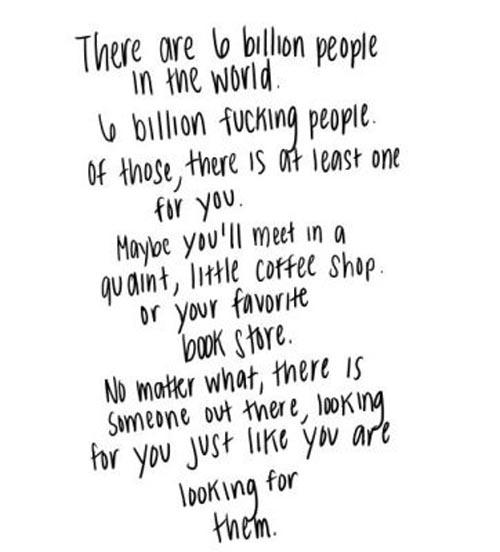 There are 6 billion people
in the world.
6 billion fucking people.
Of those, there is at least one
for you.
Maybe you'll meet in a
quaint, little coffee shop.
or your favorite
book store.
No matter what, there is
someone out there, looking
for you just like you are
looking for
them.